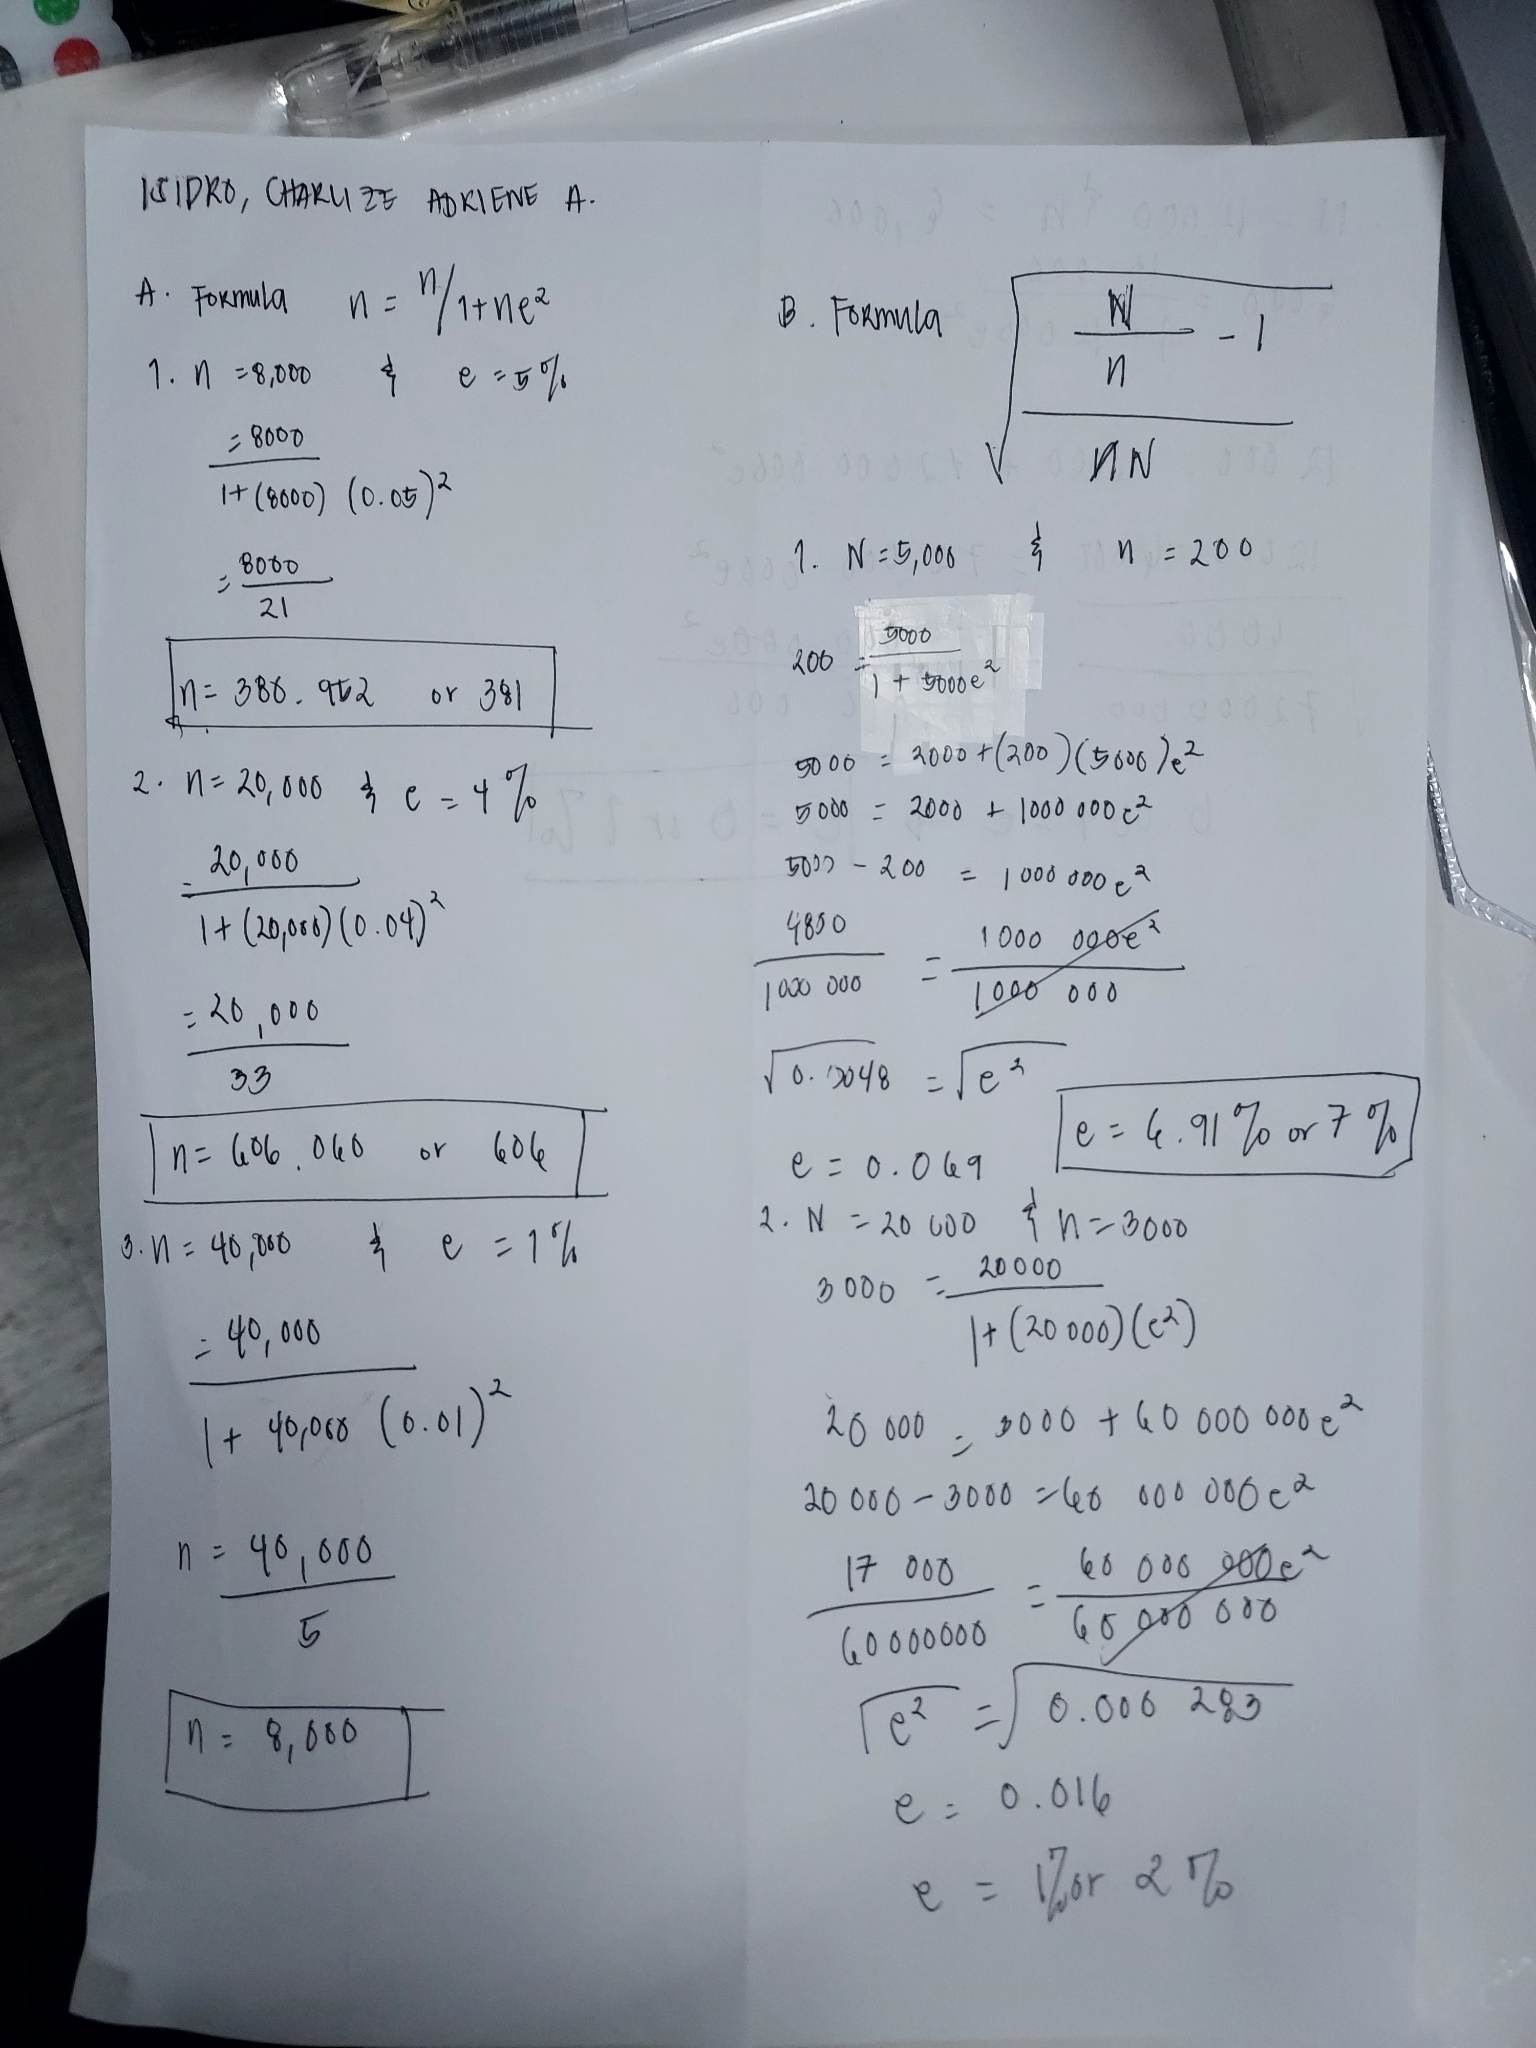 ISIDRO, CHARLIZE ADRIENE A.
A. Formula n = n/1+ne²
1. n = 8,000 & e = 5%
= 8000
1+(8000) (0.05)²
= 8000
21
n = 380.952 or 381
2. n = 20,000 & e = 4%
= 20,000
1+(20,000)(0.04)²
= 20,000
33
n = 606.060 or 606
3. n = 40,000 & e = 1%
= 40,000
1+ 40,000 (0.01)²
n = 40,000
5
n = 8,000
B. Formula √ N - 1
n
nN
1. N = 5,000 & n = 200
200 = 5000
1 + 5000e²
5000 = 2000 + (200)(5000)e²
5000 = 2000 + 1000 000e²
5000 - 200 = 1000 000e²
4800 = 1000 000e²
1000 000 1000 000
√0.0048 = √e²
e = 0.069
e = 6.91% or 7%
2. N = 20 000 & n = 3000
3000 = 20000
1+(20 000)(e²)
20 000 = 3000 + 60 000 000e²
20 000 - 3000 = 60 000 000e²
17 000 = 60 000 000e²
60000000 60 000 000
√e² = √0.000 283
e = 0.016
e = 1% or 2%